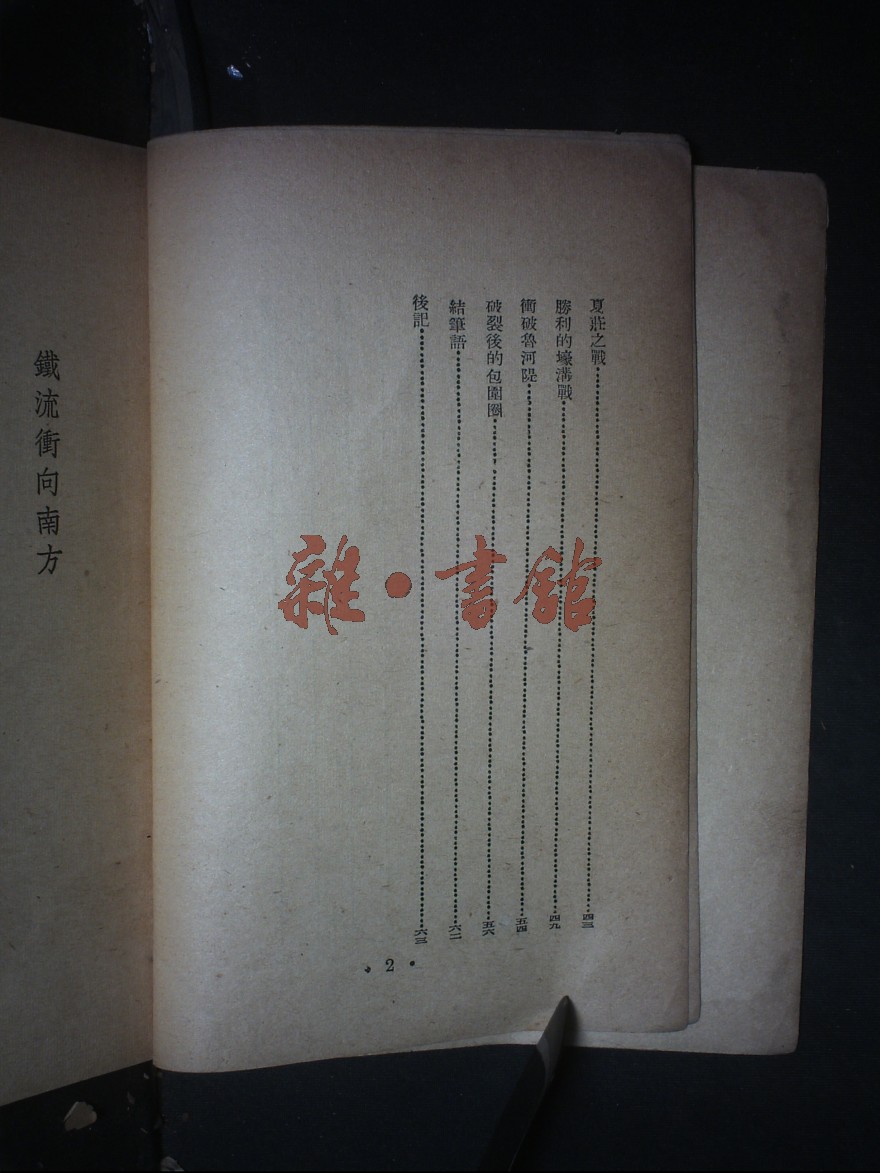 夏莊之戰……四三
勝利的壕溝戰……四九
衝破魯河隄……五四
破裂後的包圍圈……五六
結筆語……六二
後記……六三
• 2 •
鐵流衝向南方
雜•書館